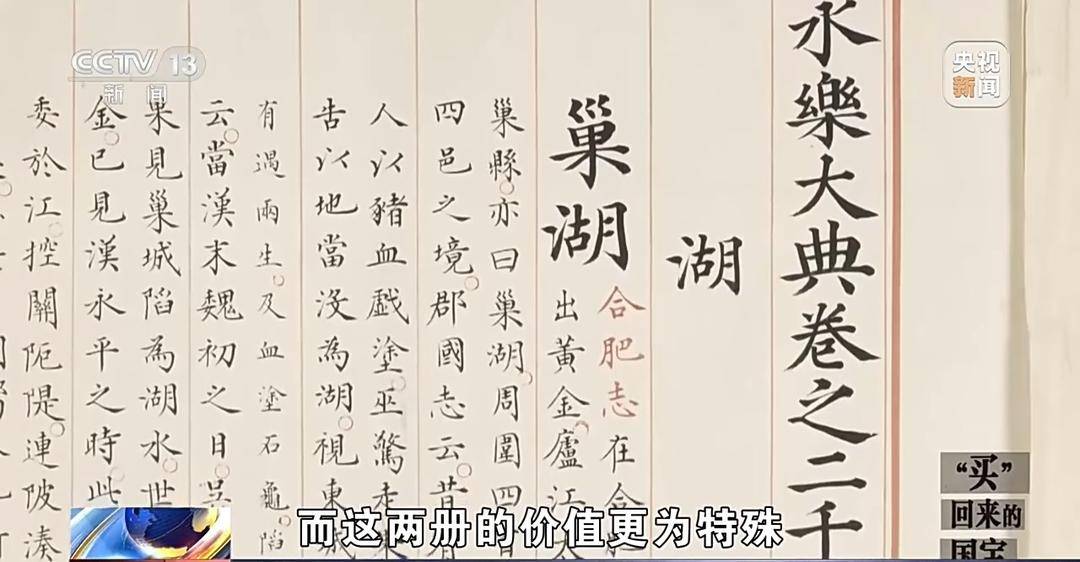 CCTV 13
新闻
央视
新闻
永樂大典卷之二千
湖
巢湖
合肥志在合
出黃金。廬江
巢縣。亦曰巢湖。周圍四
四邑之境。郡國志云。昔
人以豬血戲塗。巫驚走
告以地當沒為湖。視東城
有遇兩生。及血塗石龜。陷
云。當漢末魏初之日。吳
果見巢城陷為湖水。世
金。已見漢永平之時。此
委於江。控關阨隄。連陂湊
“买”
回来的
国宝
而这两册的价值更为特殊